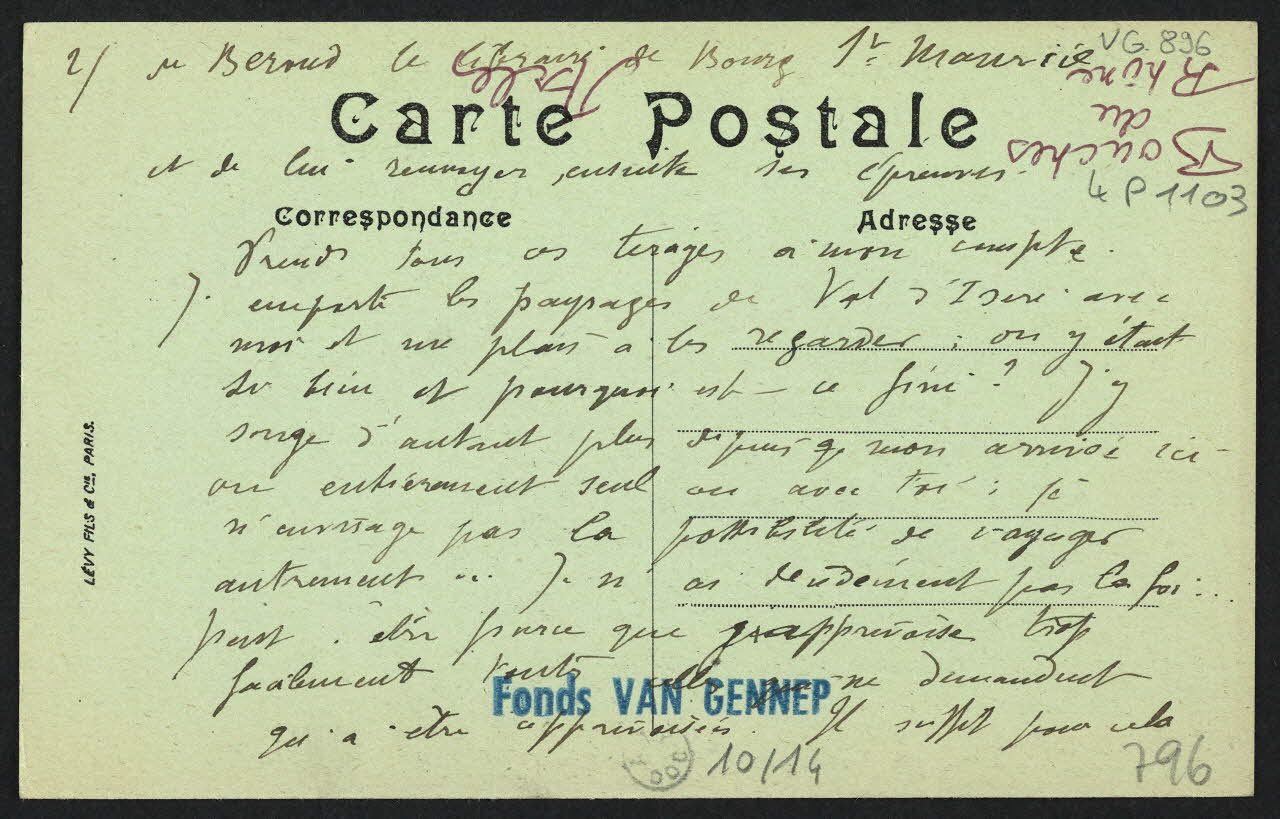 2/ de Beroud le libraire de Bourg St Maurice
VG. 896
Arles
Bouches
du
Rhône
Carte Postale
et de lui renvoyer ensuite ses épreuves.
4 P 1103
Correspondance
Adresse
Prends tous ces tirages à mon compte.
J'emporte les paysages de Val d'Isère avec
moi et me plais à les regarder ; on y était
si bien et pourquoi est-ce fini ? J'y
songe d'autant plus depuis mon arrivée ici
ou entièrement seul ou avec toi ; je
n'envisage pas la possibilité de voyager
autrement ... Je n'ai décidément pas la foi ...
peut-être parce que j'apprivoise trop
facilement toutes celles qui ne demandent
qu'à être apprivoisées. Il suffit pour cela
LÉVY FILS & Cie, PARIS.
Fonds VAN GENNEP
DOC
10/14
796